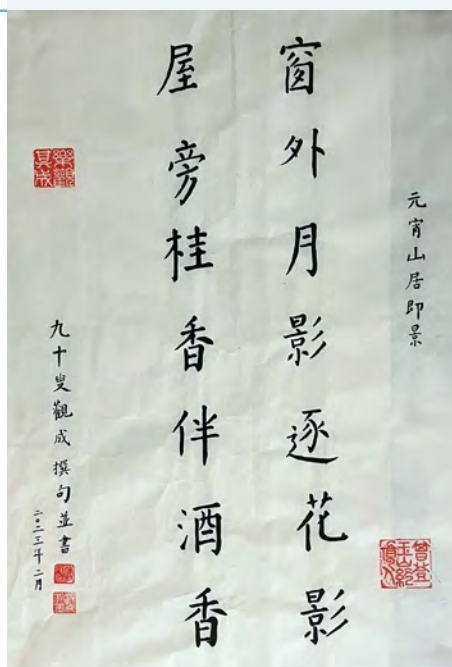 元宵山居即景
窗外月影逐花影
屋旁桂香伴酒香
九十叟觀成撰句並書
二〇二三年二月
樂觀其成